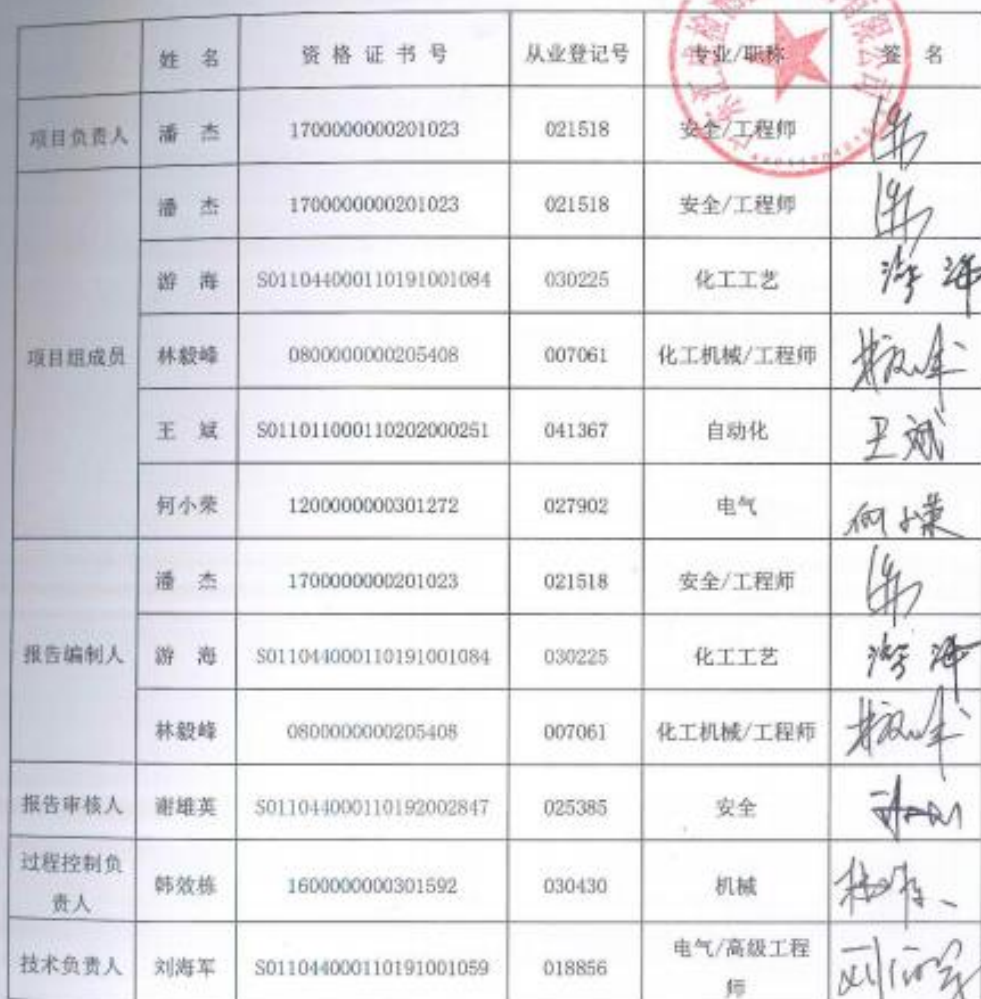 姓 名 资 格 证 书 号 从业登记号 专业/职称 签 名
项目负责人 潘 杰 1700000000201023 021518 安全/工程师
潘 杰 1700000000201023 021518 安全/工程师
游 海 S011044000110191001084 030225 化工工艺 游 海
项目组成员 林毅峰 0800000000205408 007061 化工机械/工程师 林毅峰
王 斌 S011011000110202000251 041367 自动化 王斌
何小荣 1200000000301272 027902 电气 何小荣
潘 杰 1700000000201023 021518 安全/工程师
报告编制人 游 海 S011044000110191001084 030225 化工工艺 游 海
林毅峰 0800000000205408 007061 化工机械/工程师 林毅峰
报告审核人 谢雄英 S011044000110192002847 025385 安全
过程控制负
责人 韩效栋 1600000000301592 030430 机械
技术负责人 刘海军 S011044000110191001059 018856 电气/高级工程
师 刘海军